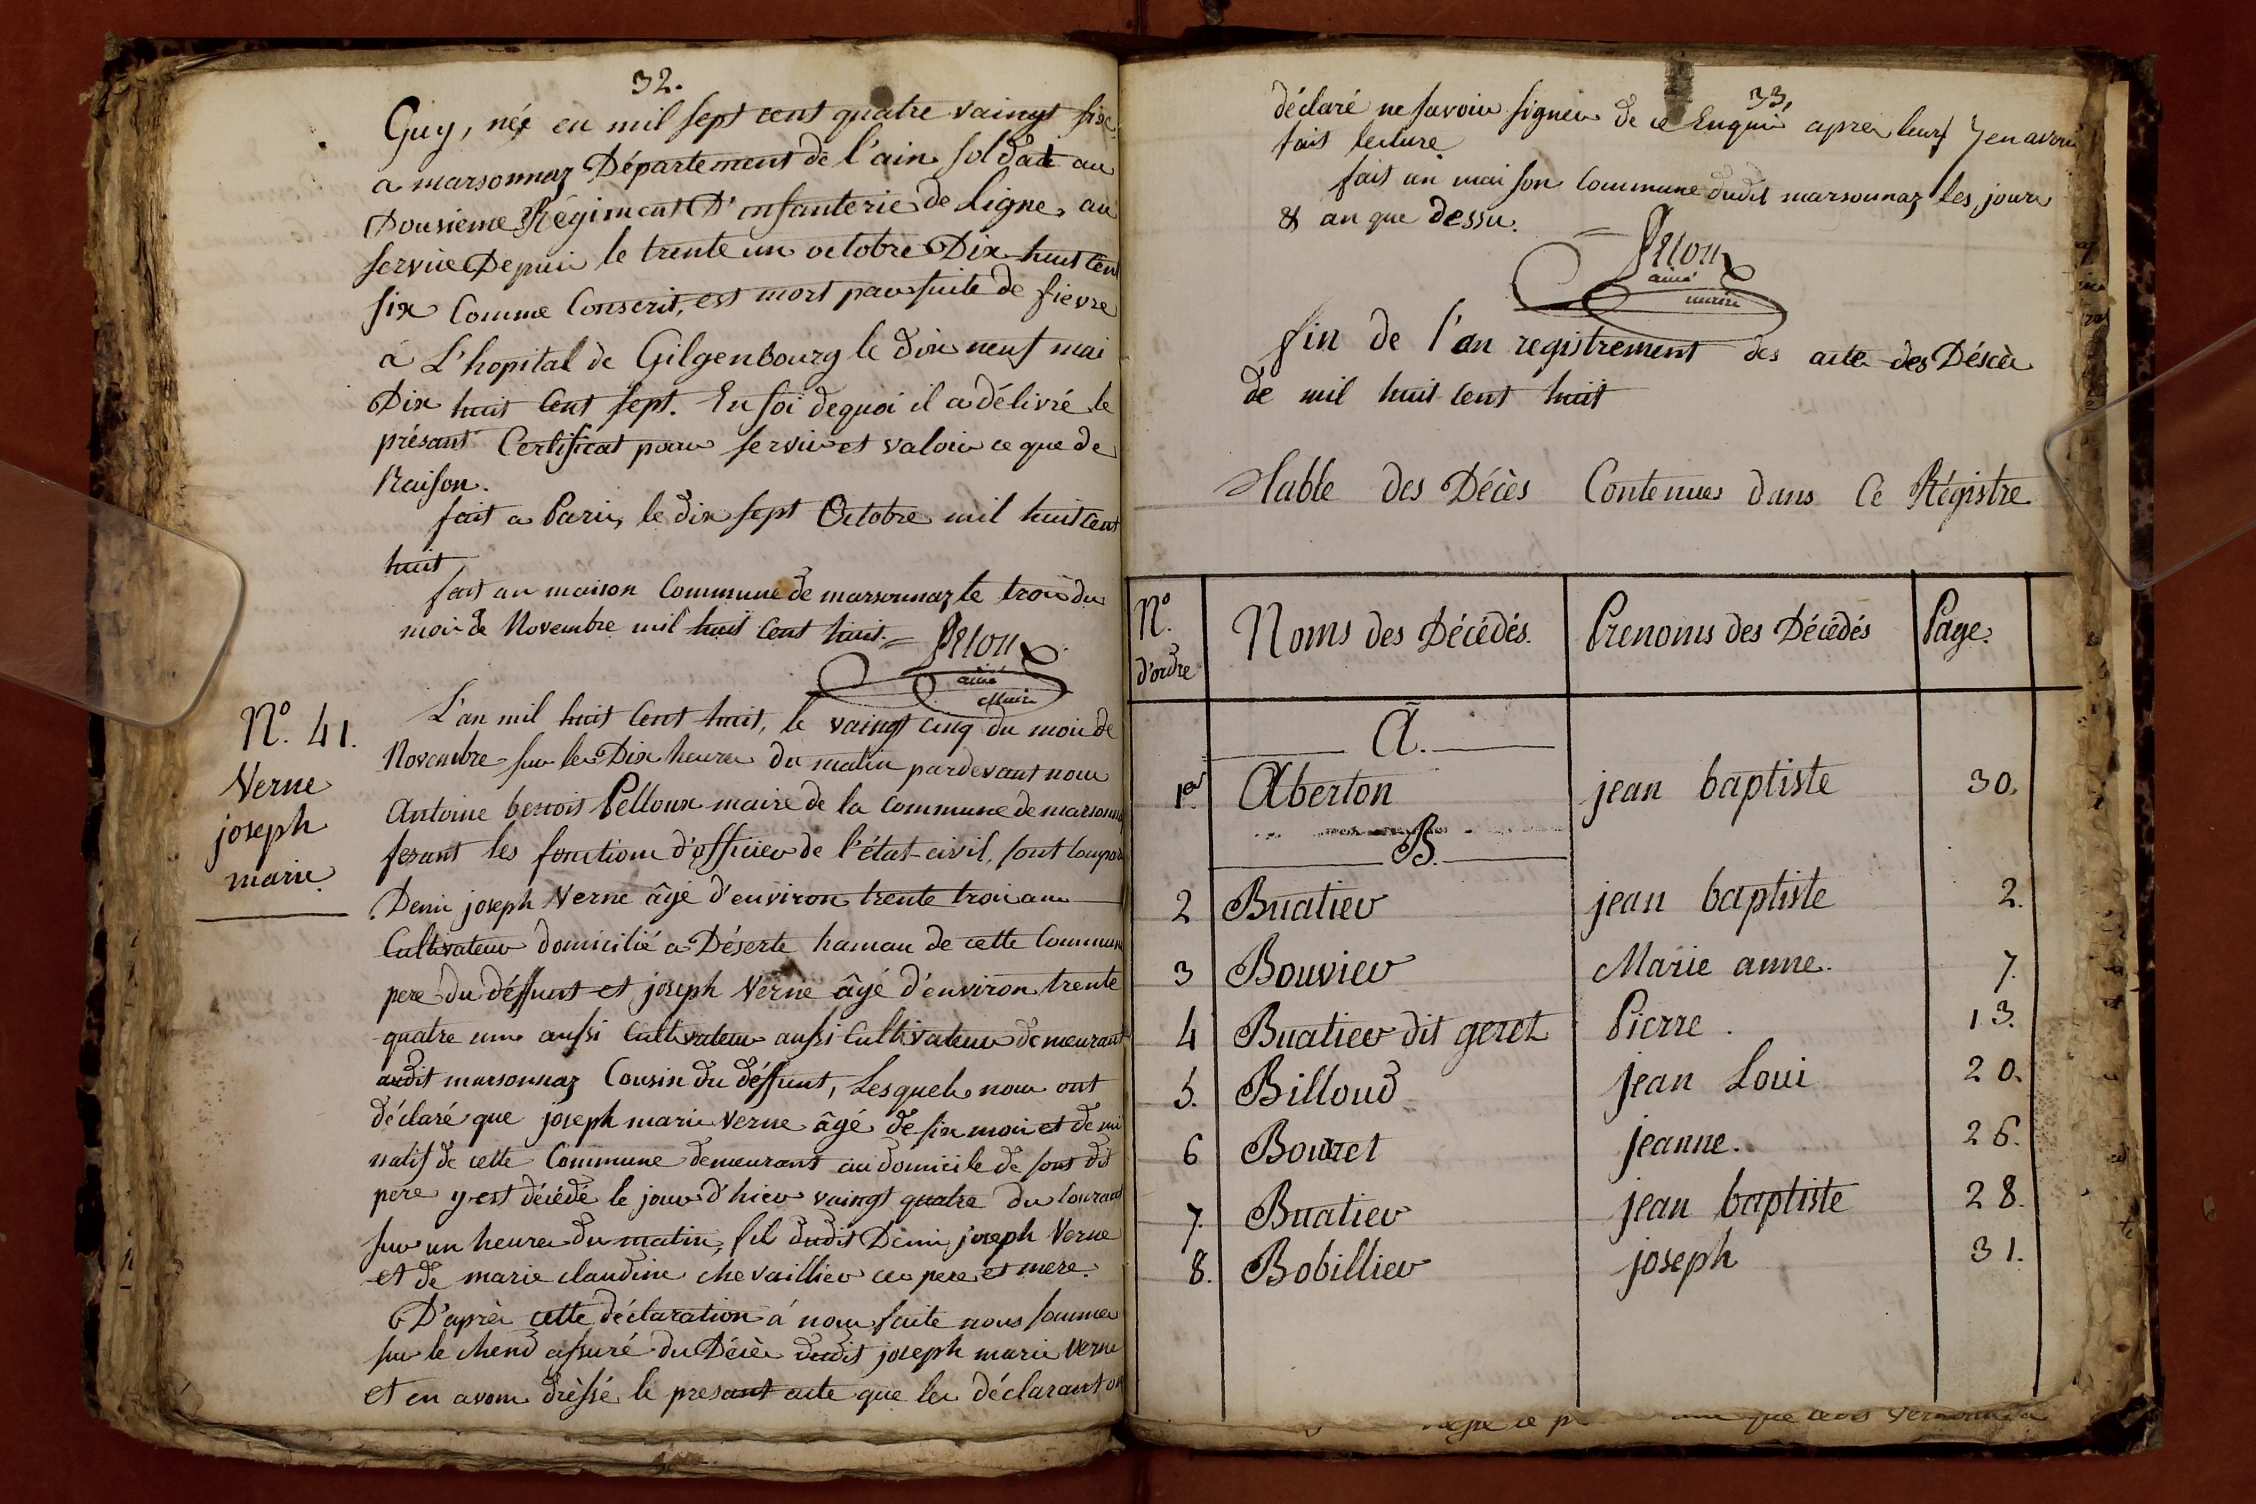 32.
Guy, né en mil sept cent quatre vaingt six
a marsonnaz Département de l'ain soldat au
Dousieme Régiment D'infanterie de Ligne, au
service Depuis le trente un octobre Dix huit cent
six Comme Conscrit, est mort par suite de fievre
á L'hopital de Gilgenbourg le dix neuf mai
Dix huit Cent sept. En foi dequoi il a délivré le
présant Certificat pour servir et valoir ce que de
Raison.
fait a Paris, le dix sept Octobre mil huit cent
huit
fait an maison Commune de marsonnaz le trois du
mois de Novembre mil huit Cent huit. =
ainé
Maire
N.° 41.
Verne
joseph
marie.
L'an mil huit Cent huit, le vaingt cinq du mois de
Novembre sur les Dix heures du matin pardevant nous
Antoine benois Pelloux maire de la Commune de marsonnaz
fesant les fonctions d'officier de l'état-civil, sont
Denis joseph Verne âgé d'environ trente trois ans
Cultivateur domicilié a Déserte hamau de cette Commune
pere du déffunt et joseph Verne âgé d'environ trente
quatre ans aussi Cultivateur aussi Cultivateur demeurant
audit marsonnaz Cousin du déffunt, Lesquels nous ont
déclaré que joseph marie Verne âgé de six mois et demi
natif de cette Commune demeurant au domicile de sont dit
pere y est décédé le jour d'hier vaingt quatre du Courant
sur un heures du matin, fils dudit Denis joseph Verne
et de marie claudine chevaillier ces pere et mere.
D'après cette déclaration á nous faite nous sommes
sur le chend assuré du Décès dudit joseph marie Verne
et en avons dréssé le presant acte que les déclarant on
33,
déclaré ne savoir signer de ce Enquis apres leurs en avoir
fait lecture
fait an maison Commune dudit marsonnaz les jours
& an que dessu.
ainé
maire
fin de l'an registrement des acte des Déscès
de mil huit Cent huit
Table des Décès Contenues dans Ce Régistre
N.° d'ordre Noms des Décédés. Prenoms des Décédés Page.
A.
1er Aberton jean baptiste 30.
B.
2 Buatier jean baptiste 2.
3 Bouvier Marie anne. 7.
4 Buatier dit geret Pierre. 13.
5. Billoud jean Loui 20.
6 Bouret jeanne. 26.
7. Buatier jean baptiste 28.
8. Bobillier joseph 31.